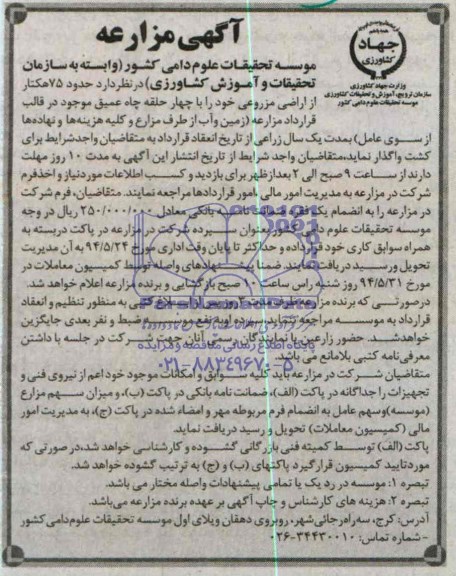 آگهی مزارعه
جهاد
کشاورزی
وزارت جهاد کشاورزی
سازمان ترویج، آموزش و تحقیقات کشاورزی
موسسه تحقیقات علوم دامی کشور
موسسه تحقیقات علوم دامی کشور (وابسته به سازمان
تحقیقات و آموزش کشاورزی) در نظر دارد حدود ۷۵ هکتار
از اراضی مزروعی خود را با چهار حلقه چاه عمیق موجود در قالب
قرارداد مزارعه (زمین وآب از طرف مزارع و کلیه هزینه ها و نهاده ها
از سوی عامل) بمدت یک سال زراعی از تاریخ انعقاد قرارداد به متقاضیان واجد شرایط برای
کشت واگذار نماید، متقاضیان واجد شرایط از تاریخ انتشار این آگهی به مدت ۱۰ روز مهلت
دارند از ساعت ۹ صبح الی ۲ بعدازظهر برای بازدید و کسب اطلاعات مورد نیاز و اخذ فرم
شرکت در مزارعه به مدیریت امور مالی ،امور قراردادها مراجعه نمایند. متقاضیان، فرم شرکت
در مزارعه را به انضمام یک فقره ضمانت نامه بانکی معادل ۲۵۰/۰۰۰/۰۰۰ ریال در وجه
موسسه تحقیقات علوم دامی کشور بعنوان سپرده شرکت در مزارعه در پاکت دربسته به
همراه سوابق کاری خود قرار داده و حداکثر تا پایان وقت اداری مورخ ۹۴/۵/۲۴ به آن مدیریت
تحویل و رسید دریافت نمایند. ضمنا پیشنهادهای واصله توسط کمیسیون معاملات در
مورخ ۹۴/۵/۳۱ روز شنبه راس ساعت ۱۰ صبح بازگشایی و برنده مزارعه اعلام خواهد شد.
درصورتی که برنده مزارعه ظرف مدت روز پس از ابلاغ کتبی به منظور تنظیم و انعقاد
قرارداد به موسسه مراجعه ننماید، سپرده او به نفع موسسه ضبط و نفر بعدی جایگزین
خواهد شد. حضور زارعین یا نمایندگان رسمی آنان جهت شرکت در جلسه با داشتن
معرفی نامه کتبی بلامانع می باشد.
پایگاه اطلاع رسانی مناقصه و مزایده
۰۲۱-۸۸۳۴۹۶۷۰-۵
متقاضیان شرکت در مزارعه باید کلیه سوابق و امکانات موجود خود اعم از نیروی فنی و
تجهیزات را جداگانه در پاکت (الف)، ضمانت نامه بانکی در پاکت (ب)، و میزان سهم مزارع
(موسسه) وسهم عامل به انضمام فرم مربوطه مهر و امضاء شده در پاکت (ج)، به مدیریت امور
مالی (کمیسیون معاملات) تحویل و رسید دریافت نماید.
پاکت (الف) توسط کمیته فنی بازرگانی گشوده و کارشناسی خواهد شد، در صورتی که
مورد تایید کمیسیون قرار گیرد پاکتهای (ب) و (ج) به ترتیب گشوده خواهد شد.
تبصره ۱: موسسه در رد یک یا تمامی پیشنهادات واصله مختار می باشد.
تبصره ۲: هزینه های کارشناس و چاپ آگهی بر عهده برنده مزارعه می باشد.
آدرس: کرج، سه راه رجائی شهر، روبروی دهقان ویلای اول موسسه تحقیقات علوم دامی کشور
- شماره تماس: ۳۴۴۳۰۰۱۰-۰۲۶